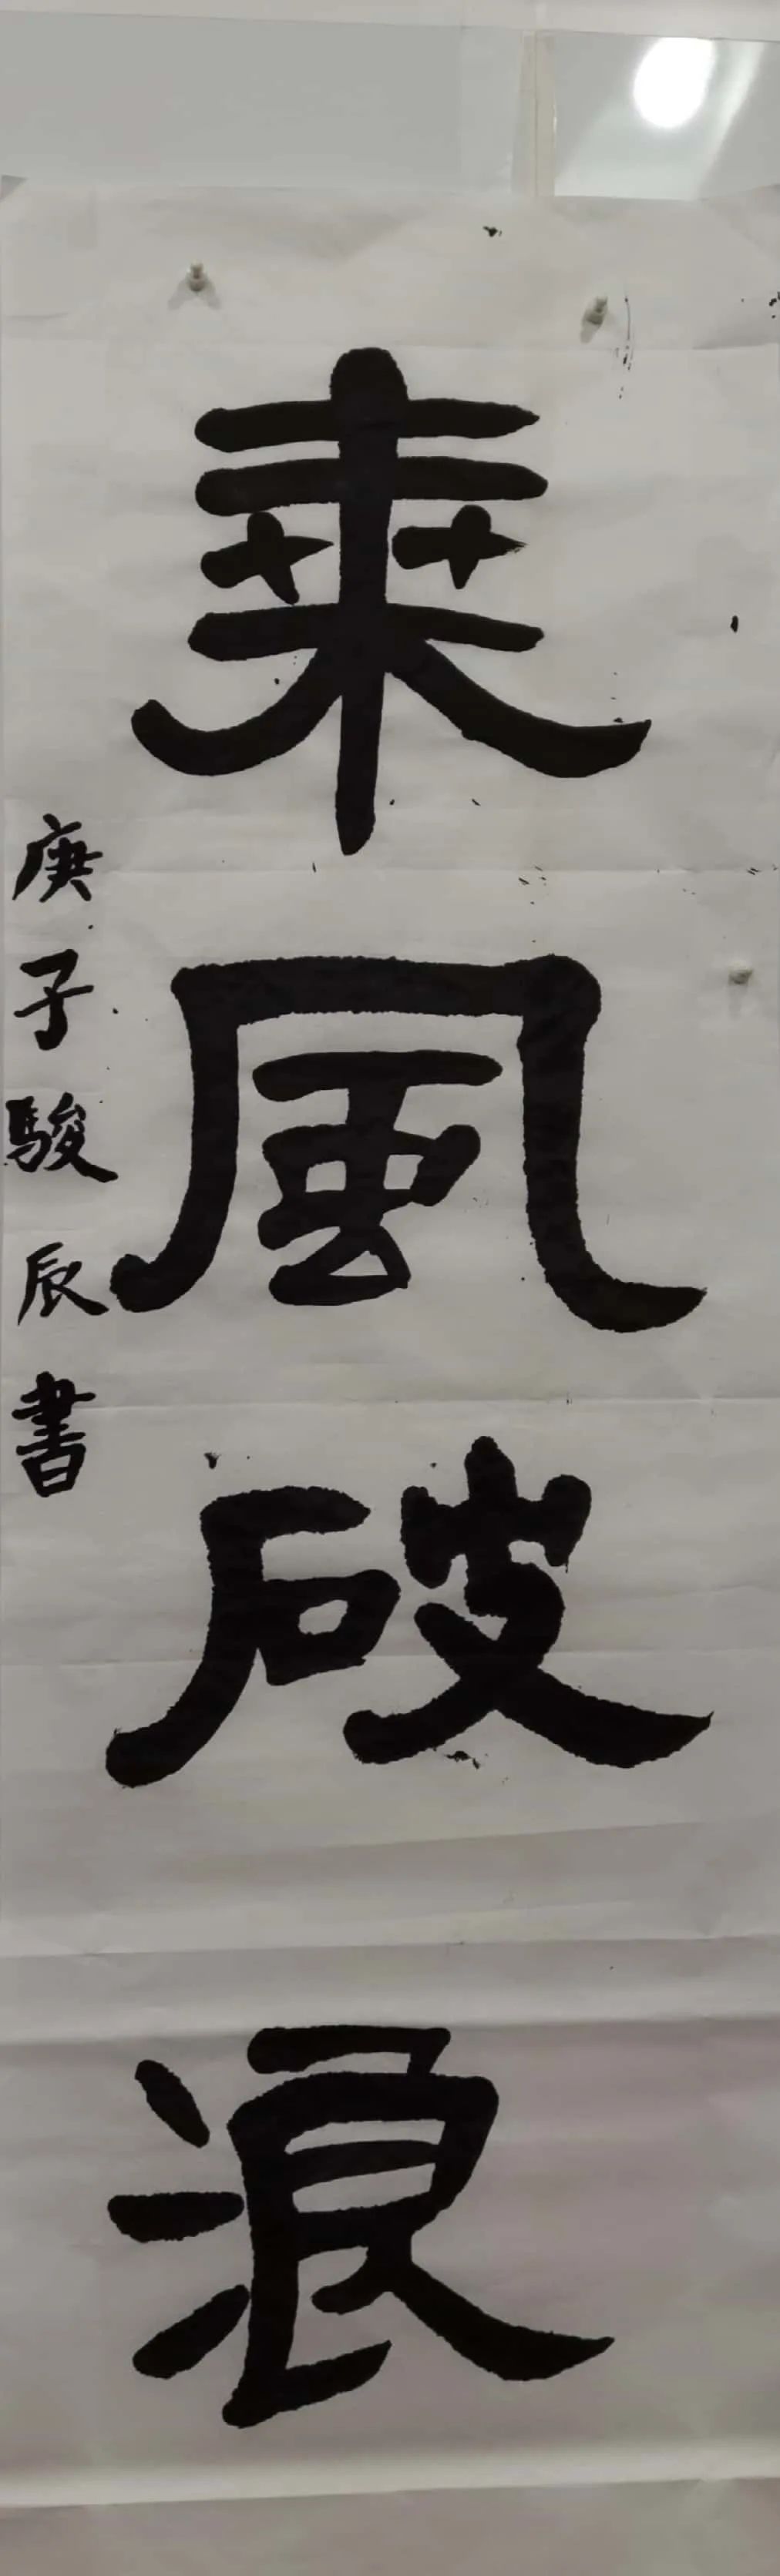 乘風破浪
庚子駿辰書